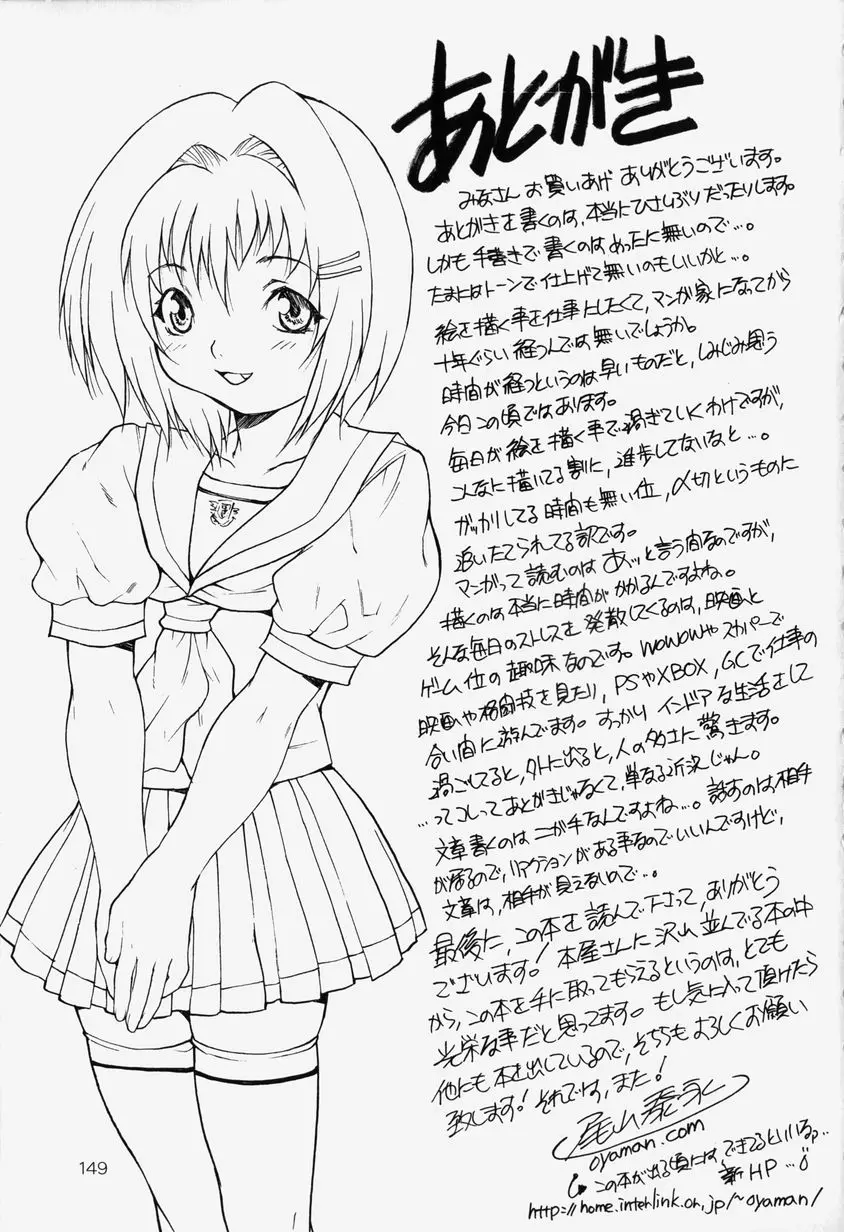 あとがき
みなさん お買いあげ ありがとうございます。
あとがきを書くのは、本当にひさしぶりだったりします。
しかも手書きで書くのはめったに無いので…。
たまにはトーンで仕上げて無いのもいいかと…。
絵を描く事を仕事にしたくて、マンガ家になってから
十年ぐらい経つんでは無いでしょうか。
時間が経つというのは早いものだと、しみじみ思う
今日この頃ではあります。
毎日が絵を描く事で過ぎていくわけですが、
こんなに描いてる割に、進歩してないなと…。
ガッカリしてる時間も無い位、〆切というものに
追いたてられてる訳です。
マンガって読むのはあッと言う間なのですが、
描くのは本当に時間がかかるんですよね。
そんな毎日のストレスを発散してくるのは、映画と
ゲーム位の趣味なのです。WOWOWやスカパーで
映画や格闘技を見たり、PSやXBOX,GCで仕事の
合い間に遊んでます。すっかりインドアな生活をして
過ごしてると、外に出ると、人の多さに驚きます。
…ってコレってあとがきじゃなくて、単なる近況じゃん。
文章書くのはニが手なんですよね…。話すのは相手
が居るので、リアクションがある事なのでいいんですけど、
文章は、相手が見えないので…。
最後に、この本を読んで下さって、ありがとう
でざいます!本屋さんに沢山並んでる本の中
から、この本を手に取ってもらえるというのは、とても
光栄な事だと思ってます。もし気に入って頂けたら
他にも本を出しているので、そちらもよろしくお願い
致します!それでは、また!
尾山泰永
oyaman.com
この本が出る頃には、できてるといいなぁ…
新HP…
http://home.interlink.or.jp/~oyaman/
149